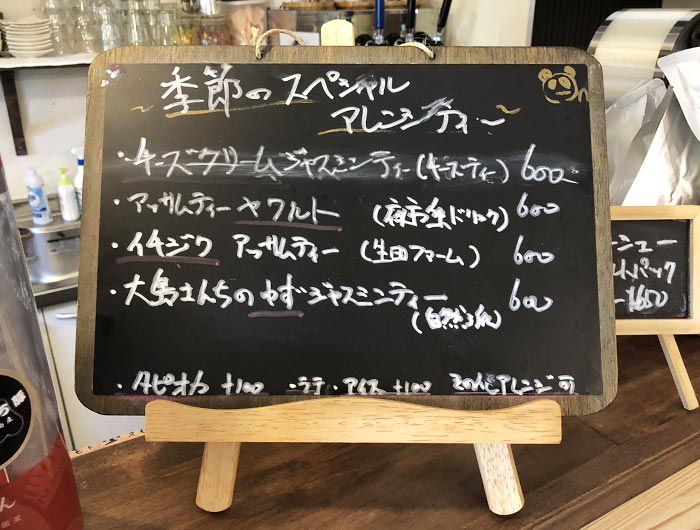 ～季節のスペシャル
アレンジティー～
・チーズクリームジャスミンティー(チーズティー) 600
・アッサムティーヤクルト (夜市系ドリンク) 600
・イチジクアッサムティー (生田ファーム) 600
・大島さんちのゆずジャスミンティー 600
(自然派)
・タピオカ +100 ・ラテ・アイス +100 アレンジ可
シュー
パック
¥650